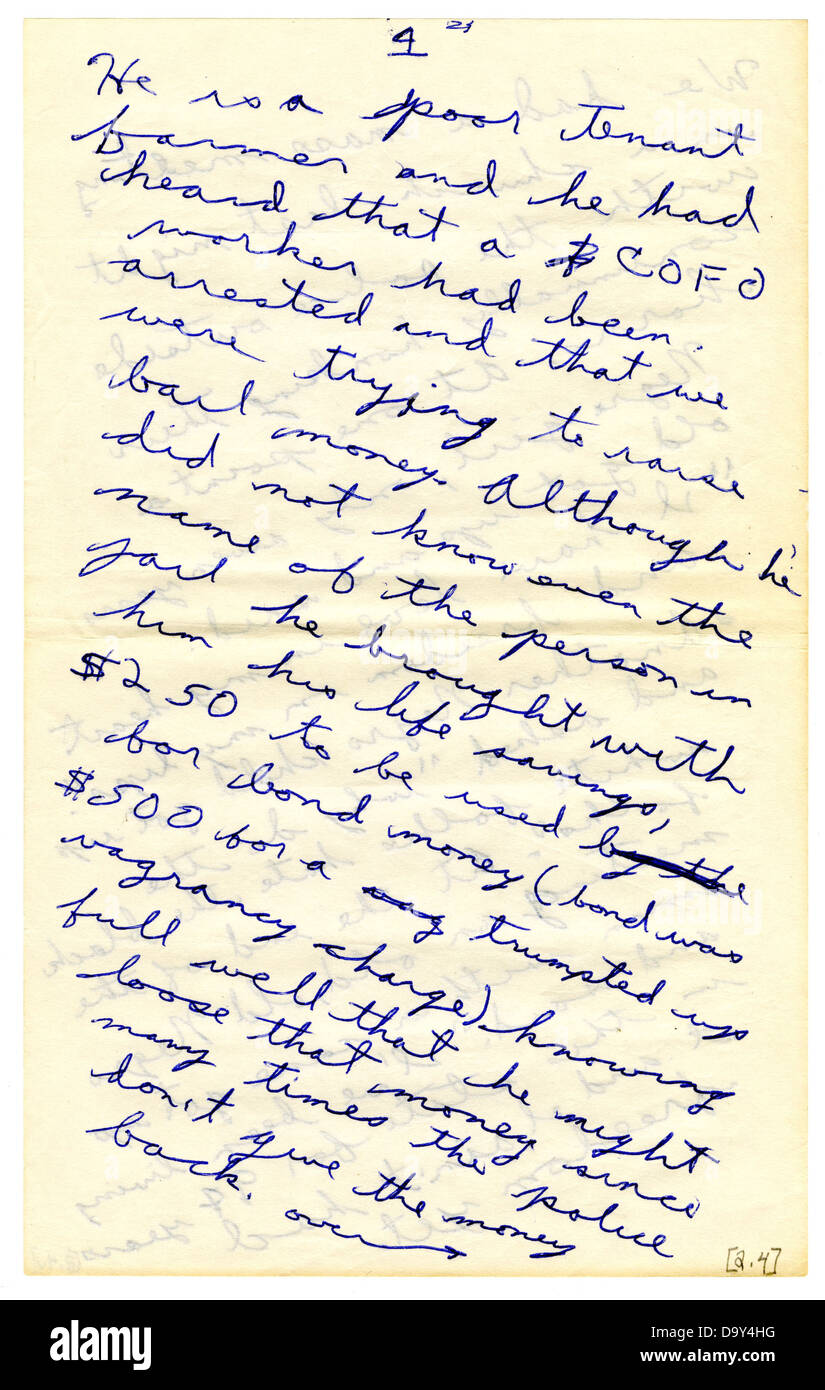 4 21
He is a poor tenant
farmer and he had
heard that a COFO
worker had been
arrested and that we
were trying to raise
bail money. Although he
did not know even the
name of the person in
jail he brought with
him his life savings,
$250 to be used by the
for bond money (bond was
$500 for a vag trumpted up
vagrancy charge) knowing
full well that he might
loose that money since
many times the police
don't give the money
back. over
[2.4]
alamy
Image ID: D9Y4HG
www.alamy.com